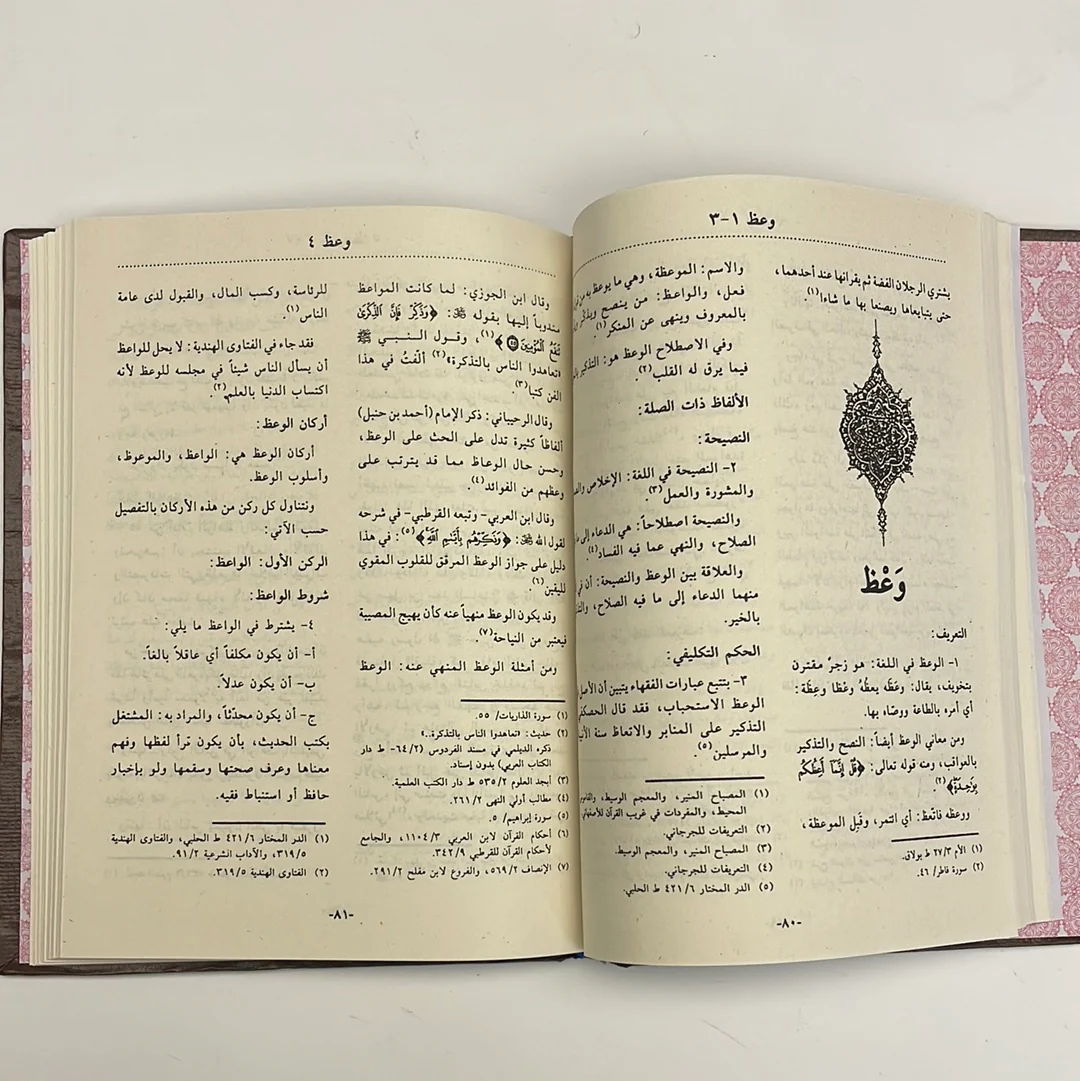 وعظ ١-٣
يشتري الرجلان الفضة ثم يقرانها عند أحدهما،
حتى يتبايعاها ويصنعا بها ما شاءا(١).
وَعْظ
التعريف:
١- الوعظ في اللغة: هو زجرٌ مقترن
بتخويف، يقال: وعَظَه يعظُهُ وعْظا وعِظة:
أي أمره بالطاعة ووصّاه بها.
ومن معاني الوعظ أيضاً: النصح والتذكير
بالعواقب، ومنه قوله تعالى: ﴿قُلْ إِنَّمَآ أَعِظُكُم
بِوَٰحِدَةٍ﴾(٢).
ووعظه فاتعظ: أي ائتمر، وقَبِل الموعظة،
(١) الأم ٢٧/٣ ط بولاق.
(٢) سورة فاطر/ ٤٦.
والاسم: الموعظة، وهي ما يوعظ به من
فعل، والواعظ: من ينصح ويذكر
بالمعروف وينهى عن المنكر(١).
وفي الاصطلاح الوعظ هو: التذكير
فيما يرق له القلب(٢).
الألفاظ ذات الصلة:
النصيحة:
٢- النصيحة في اللغة: الإخلاص
والمشورة والعمل(٣).
والنصيحة اصطلاحاً: هي الدعاء إلى
الصلاح، والنهي عما فيه الفساد(٤).
والعلاقة بين الوعظ والنصيحة: أن في
منهما الدعاء إلى ما فيه الصلاح،
بالخير.
الحكم التكليفي:
٣- بتتبع عبارات الفقهاء يتبين أن الأصل
الوعظ الاستحباب، فقد قال الحصكفي
التذكير على المنابر والاتعاظ سنة
والمرسلين(٥).
(١) المصباح المنير، والمعجم الوسيط،
المحيط، والمفردات في غريب القرآن للأصفهاني
(٢) التعريفات للجرجاني.
(٣) المصباح المنير، والمعجم الوسيط.
(٤) التعريفات للجرجاني.
(٥) الدر المختار ٤٢١/٦ ط الحلبي.
-٨٠-
وعظ ٤
وقال ابن الجوزي: لما كانت المواعظ
مندوباً إليها بقوله ﷻ: ﴿وَذَكِّرْ فَإِنَّ ٱلذِّكْرَىٰ
تَنفَعُ ٱلْمُؤْمِنِينَ ٥٥﴾(١)، وقول النبي ﷺ
«تعاهدوا الناس بالتذكرة»(٢) ألّفتُ في هذا
الفن كتبا(٣).
وقال الرحيباني: ذكر الإمام (أحمد بن حنبل)
ألفاظاً كثيرة تدل على الحث على الوعظ،
وحسن حال الوعاظ مما قد يترتب على
وعظهم من الفوائد(٤).
وقال ابن العربي- وتبعه القرطبي- في شرحه
لقول الله ﷻ: ﴿وَذَكِّرْهُم بِأَيَّىٰمِ ٱللَّهِ﴾(٥): في هذا
دليل على جواز الوعظ المرقق للقلوب المقوي
لليقين(٦)
وقد يكون الوعظ منهياً عنه كأن يهيج المصيبة
فيعتبر من النياحة(٧).
ومن أمثلة الوعظ المنهي عنه: الوعظ
(١) سورة الذاريات/ ٥٥.
(٢) حديث: «تعاهدوا الناس بالتذكرة..»
ذكره الديلمي في مسند الفردوس (٦٤/٢- ط دار
الكتاب العربي) بدون إسناد.
(٣) أبجد العلوم ٥٣٥/٢ ط دار الكتب العلمية.
(٤) مطالب أولي النهى ٢٦١/٢.
(٥) سورة إبراهيم/ ٥.
(٦) أحكام القرآن لابن العربي ١١٠٤/٣، والجامع
لأحكام القرآن للقرطبي ٣٤٢/٩.
(٧) الإنصاف ٥٦٩/٢، والفروع لابن مفلح ٢٩١/٢.
للرئاسة، وكسب المال، والقبول لدى عامة
الناس(١).
فقد جاء في الفتاوى الهندية: لا يحل للواعظ
أن يسأل الناس شيئاً في مجلسه للوعظ لأنه
اكتساب الدنيا بالعلم(٢).
أركان الوعظ:
أركان الوعظ هي: الواعظ، والموعوظ،
وأسلوب الوعظ.
ونتناول كل ركن من هذه الأركان بالتفصيل
حسب الآتي:
الركن الأول: الواعظ:
شروط الواعظ:
٤- يشترط في الواعظ ما يلي:
أ- أن يكون مكلفاً أي عاقلاً بالغاً.
ب- أن يكون عدلاً.
ج- أن يكون محدّثاً، والمراد به: المشتغل
بكتب الحديث، بأن يكون قرأ لفظها وفهم
معناها وعرف صحتها وسقمها ولو بإخبار
حافظ أو استنباط فقيه.
(١) الدر المختار ٤٢١/٦ ط الحلبي، والفتاوى الهندية
٣١٩/٥، والآداب الشرعية ٩١/٢.
(٢) الفتاوى الهندية ٣١٩/٥.
-٨١-